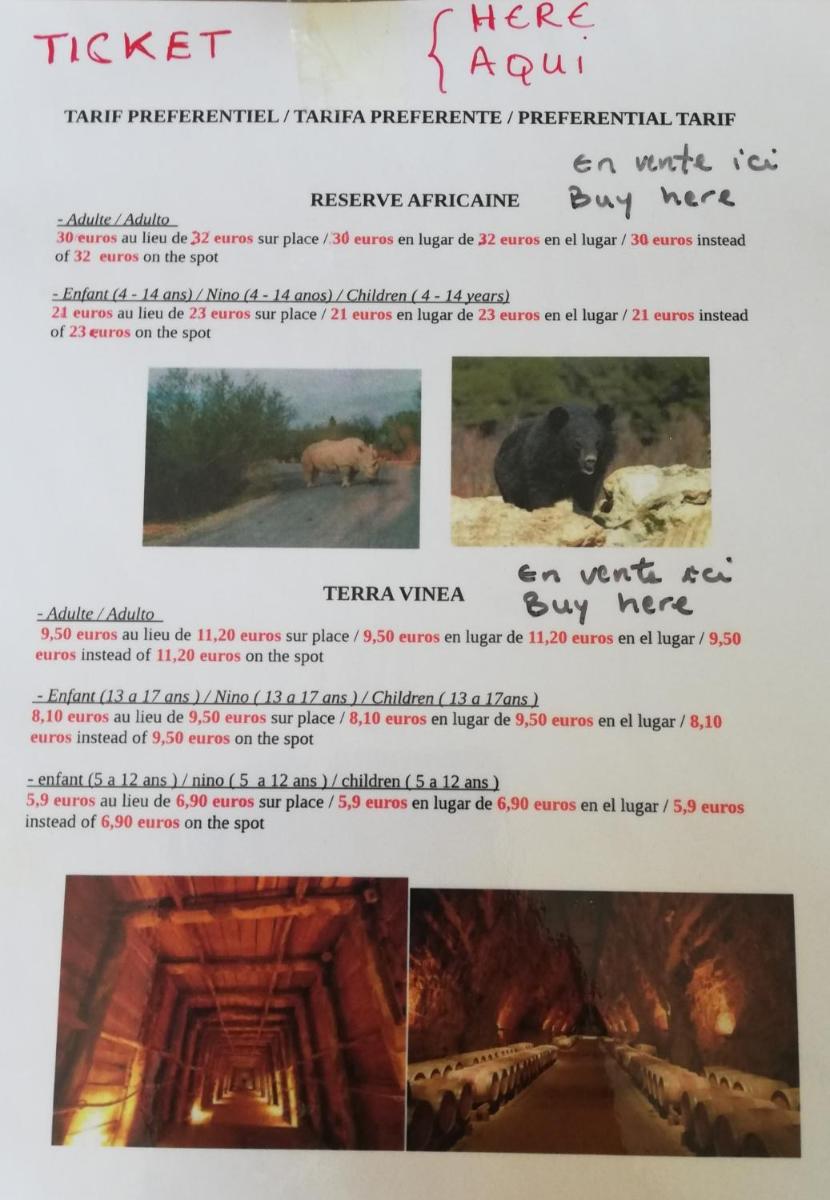 TICKET { HERE
AQUI
TARIF PREFERENTIEL / TARIFA PREFERENTE / PREFERENTIAL TARIF
En vente ici
Buy here
RESERVE AFRICAINE
- Adulte / Adulto
30 euros au lieu de 32 euros sur place / 30 euros en lugar de 32 euros en el lugar / 30 euros instead
of 32 euros on the spot
- Enfant (4 - 14 ans) / Nino (4 - 14 anos) / Children ( 4 - 14 years)
21 euros au lieu de 23 euros sur place / 21 euros en lugar de 23 euros en el lugar / 21 euros instead
of 23 euros on the spot
En vente ici
Buy here
TERRA VINEA
- Adulte / Adulto
9,50 euros au lieu de 11,20 euros sur place / 9,50 euros en lugar de 11,20 euros en el lugar / 9,50
euros instead of 11,20 euros on the spot
- Enfant (13 a 17 ans ) / Nino ( 13 a 17 ans ) / Children ( 13 a 17ans )
8,10 euros au lieu de 9,50 euros sur place / 8,10 euros en lugar de 9,50 euros en el lugar / 8,10
euros instead of 9,50 euros on the spot
- enfant (5 a 12 ans ) / nino ( 5 a 12 ans ) / children ( 5 a 12 ans )
5,9 euros au lieu de 6,90 euros sur place / 5,9 euros en lugar de 6,90 euros en el lugar / 5,9 euros
instead of 6,90 euros on the spot